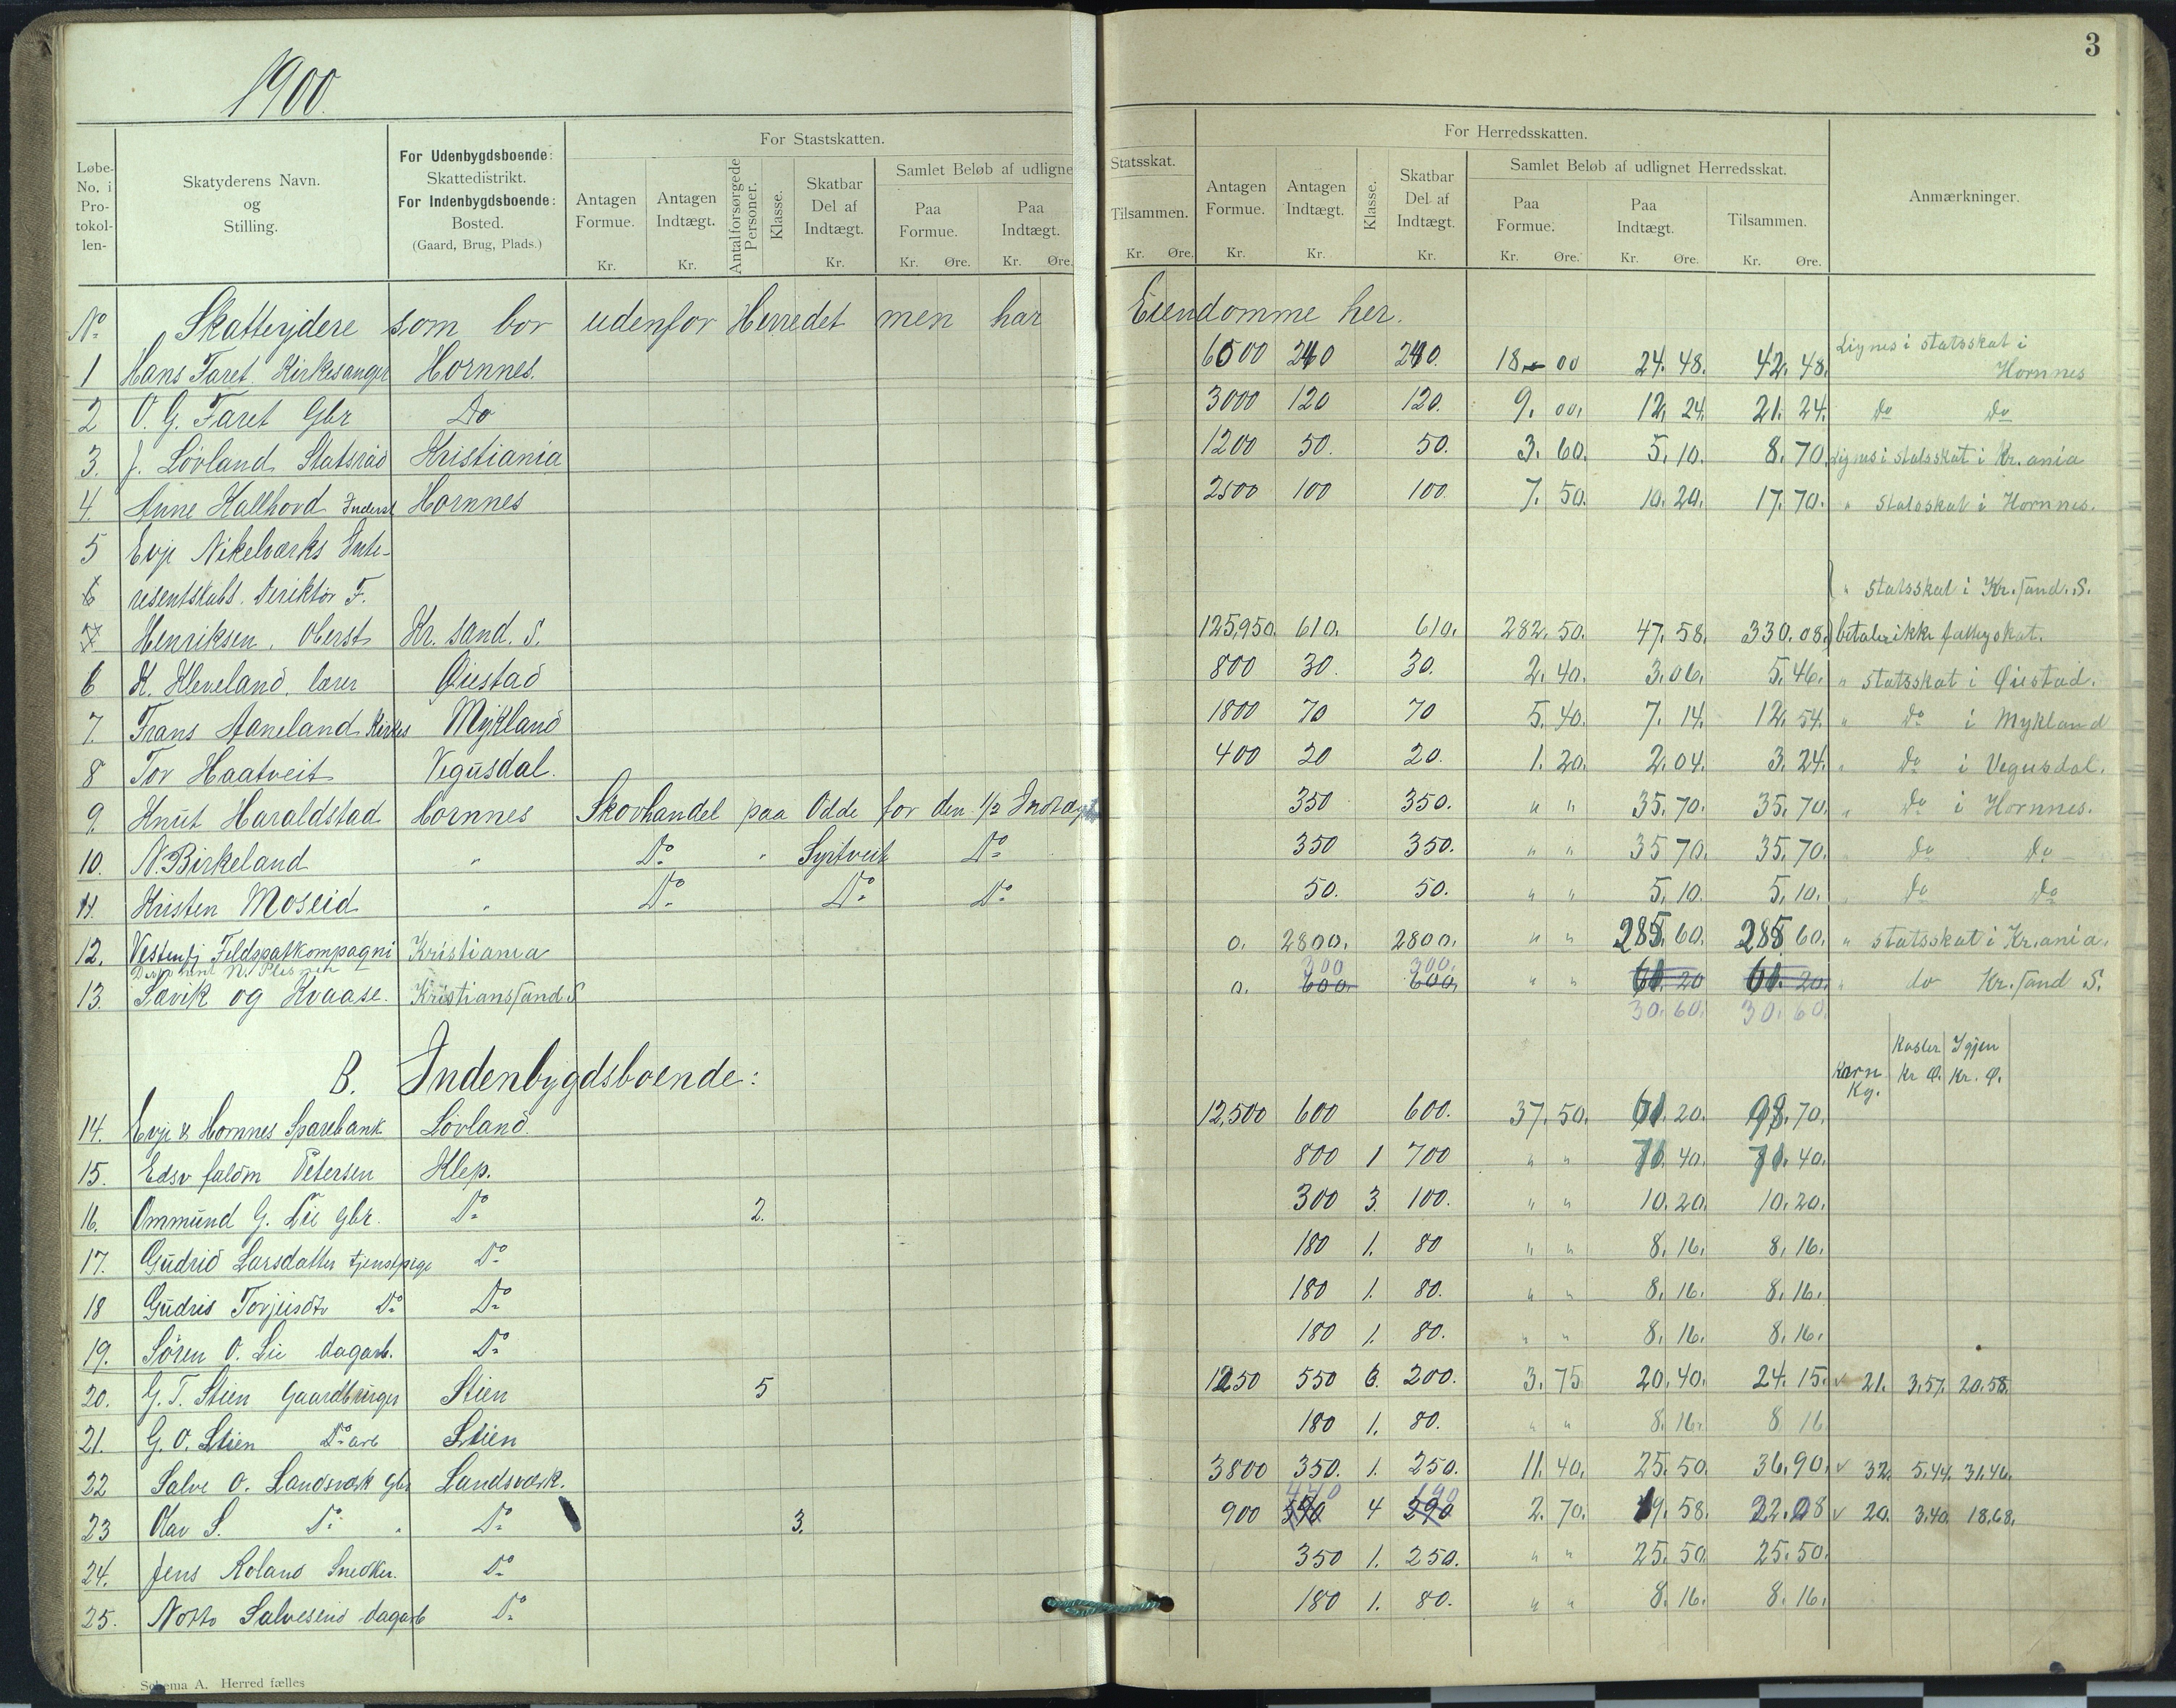 1900.
3
Løbe-No. i Protokollen-
Skatyderens Navn. og Stilling.
For Udenbygdsboende: Skattedistrikt. For Indenbygdsboende: Bosted. (Gaard, Brug, Plads.)
For Stastskatten.
Antagen Formue. Kr.
Antagen Indtægt. Kr.
Antal forsørgede Personer.
Klasse.
Skatbar Del af Indtægt. Kr.
Samlet Beløb af udligne
Paa Formue. Kr. Øre.
Paa Indtægt. Kr. Øre.
Statsskat.
Tilsammen. Kr. Øre.
For Herredsskatten.
Antagen Formue. Kr.
Antagen Indtægt. Kr.
Klasse.
Skatbar Del af Indtægt. Kr.
Samlet Beløb af udlignet Herredsskat.
Paa Formue. Kr. Øre.
Paa Indtægt. Kr. Øre.
Tilsammen. Kr. Øre.
Anmærkninger.
No Skatteydere som bor udenfor Herredet men har Eiendomme her.
1 Hans Faret Kirkesanger Hornnes. 6000 240 240. 18 00 24. 48. 42. 48. Lignes i statsskat i Hornnes
2 O. G. Faret Gbr Do 3000 120 120. 9. 00. 12. 24. 21. 24. do do
3. J. Lövland Statsråd Kristiania 1200 50. 50. 3. 60. 5. 10. 8. 70. Lignes i statsskat i Kr.ania
4. Anne Hallhord Hornnes 2500 100 100. 7. 50. 10. 20. 17. 70. " Statsskat i Hornnes.
5 Evje Nikelværks Inte-
6 resentskabs. Direktör F. " statsskat i Kr.sand. S.
7 Henriksen, Oberst Kr. sand. S. 125,950. 610. 610. 282. 50. 47. 58. 330. 08. betaler ikke fattigskat.
6 K. Kleveland. lærer Øiestad 800 30. 30. 2. 40. 3. 06. 5. 46. " statsskat i Øiestad.
7. Frans Aaneland Kirkes Mykland 1800 70 70 5. 40. 7. 14. 12. 54. " do i Mykland
8 Tor Haatveit Vegusdal. 400 20 20. 1. 20. 2. 04. 3. 24. " do i Vegusdal.
9. Knut Haraldstad Hornnes Skovhandel paa Odde for den 1/2 Indtægt 350 350. " " 35. 70. 35. 70. " do i Hornnes.
10. N. Birkeland " Do " Syrtveit Do 350 350. " " 35 70. 35. 70. " do do
11. Kristen Moseid " Do Do Do 50. 50. " " 5. 10. 5. 10. " do do
12. Vestenfj Feldspatkompagni Kristiania 0. 2800. 2800. " " 285. 60. 285 60. " statsskat i Kr.ania.
300 300.
13. Savik og Kvaase. Kristianssand S 0. 600. 600. " " 61. 20 61. 20. " do Kr.sand S.
30. 60. 30. 60.
B. Indenbygdsboende:
Korn Kg. Koster Kr Ø. Igjen Kr. Ø.
14. Evje & Hornnes Sparebank Lövland. 12,500 600 600. 37. 50. 61. 20. 98. 70.
15. Edsv faldm Petersen Klep. 800 1 700 " " 71. 40. 71. 40.
16. Ommund G. Lie gbr. Do 2. 300 3. 100. " " 10. 20. 10. 20.
17. Gudrid Larsdatter tjenstpige Do 180 1. 80 " " 8. 16. 8. 16.
18 Gudris Torjeisdtr Do Do 180 1. 80. " " 8. 16. 8. 16.
19. Sören O. Lie dagarb. Do 180 1. 80. " " 8. 16. 8. 16.
20. G. T. Stien Gaardbruger Stien 5 1250 550 6. 200. 3. 75 20. 40. 24. 15. v 21. 3.57. 20.58.
21. G. O. Stien Do arb Stien 180 1. 80. " " 8. 16. 8. 16
22 Salve O. Landsværk gbr Landsværk. 3800 350. 1. 250. 11. 40. 25. 50. 36. 90. v 32. 5.44. 31.46.
440 190
23 Olav S. Do " Do 3. 900 540 4 290 2. 70. 19. 58. 22. 28 v 20. 3.40. 18.68.
24. Jens Roland Snedker. Do 350 1. 250. " " 25. 50. 25. 50.
25. Notto Salvesend dagarb Do 180 1. 80. " " 8. 16. 8. 16.
Schema A. Herred fælles